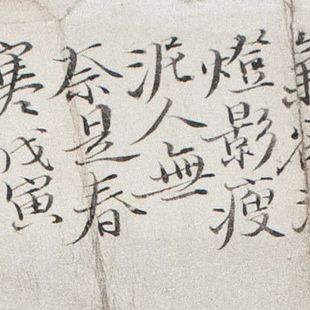 燈影瘦
泥人無
奈是春
寒戊寅